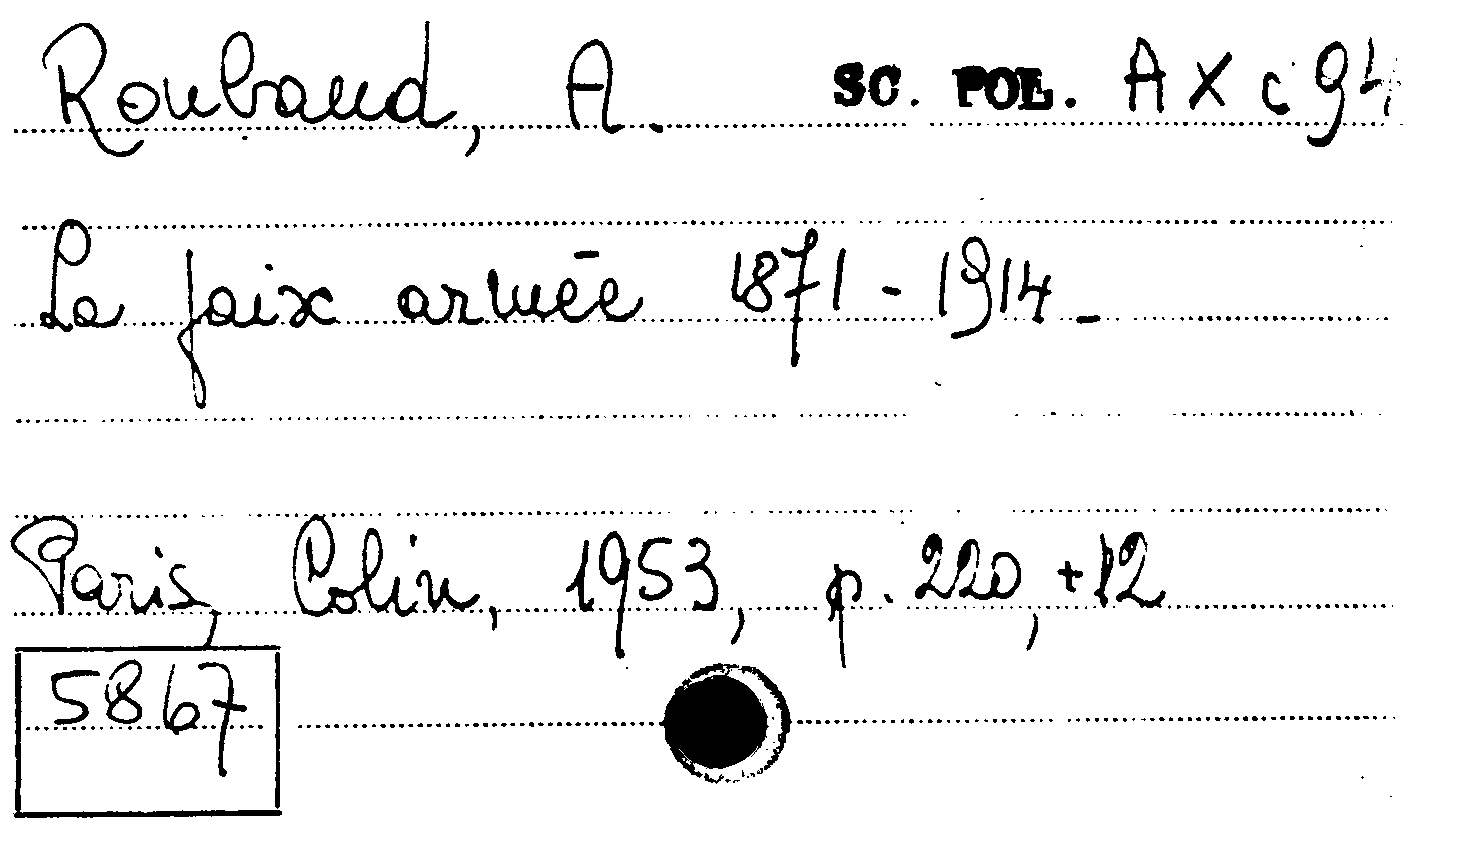 Roubaud, A. SC. POL. A X c 94
La paix armée 1871 - 1914 -
Paris, Colin, 1953, p. 220, + 12
5867